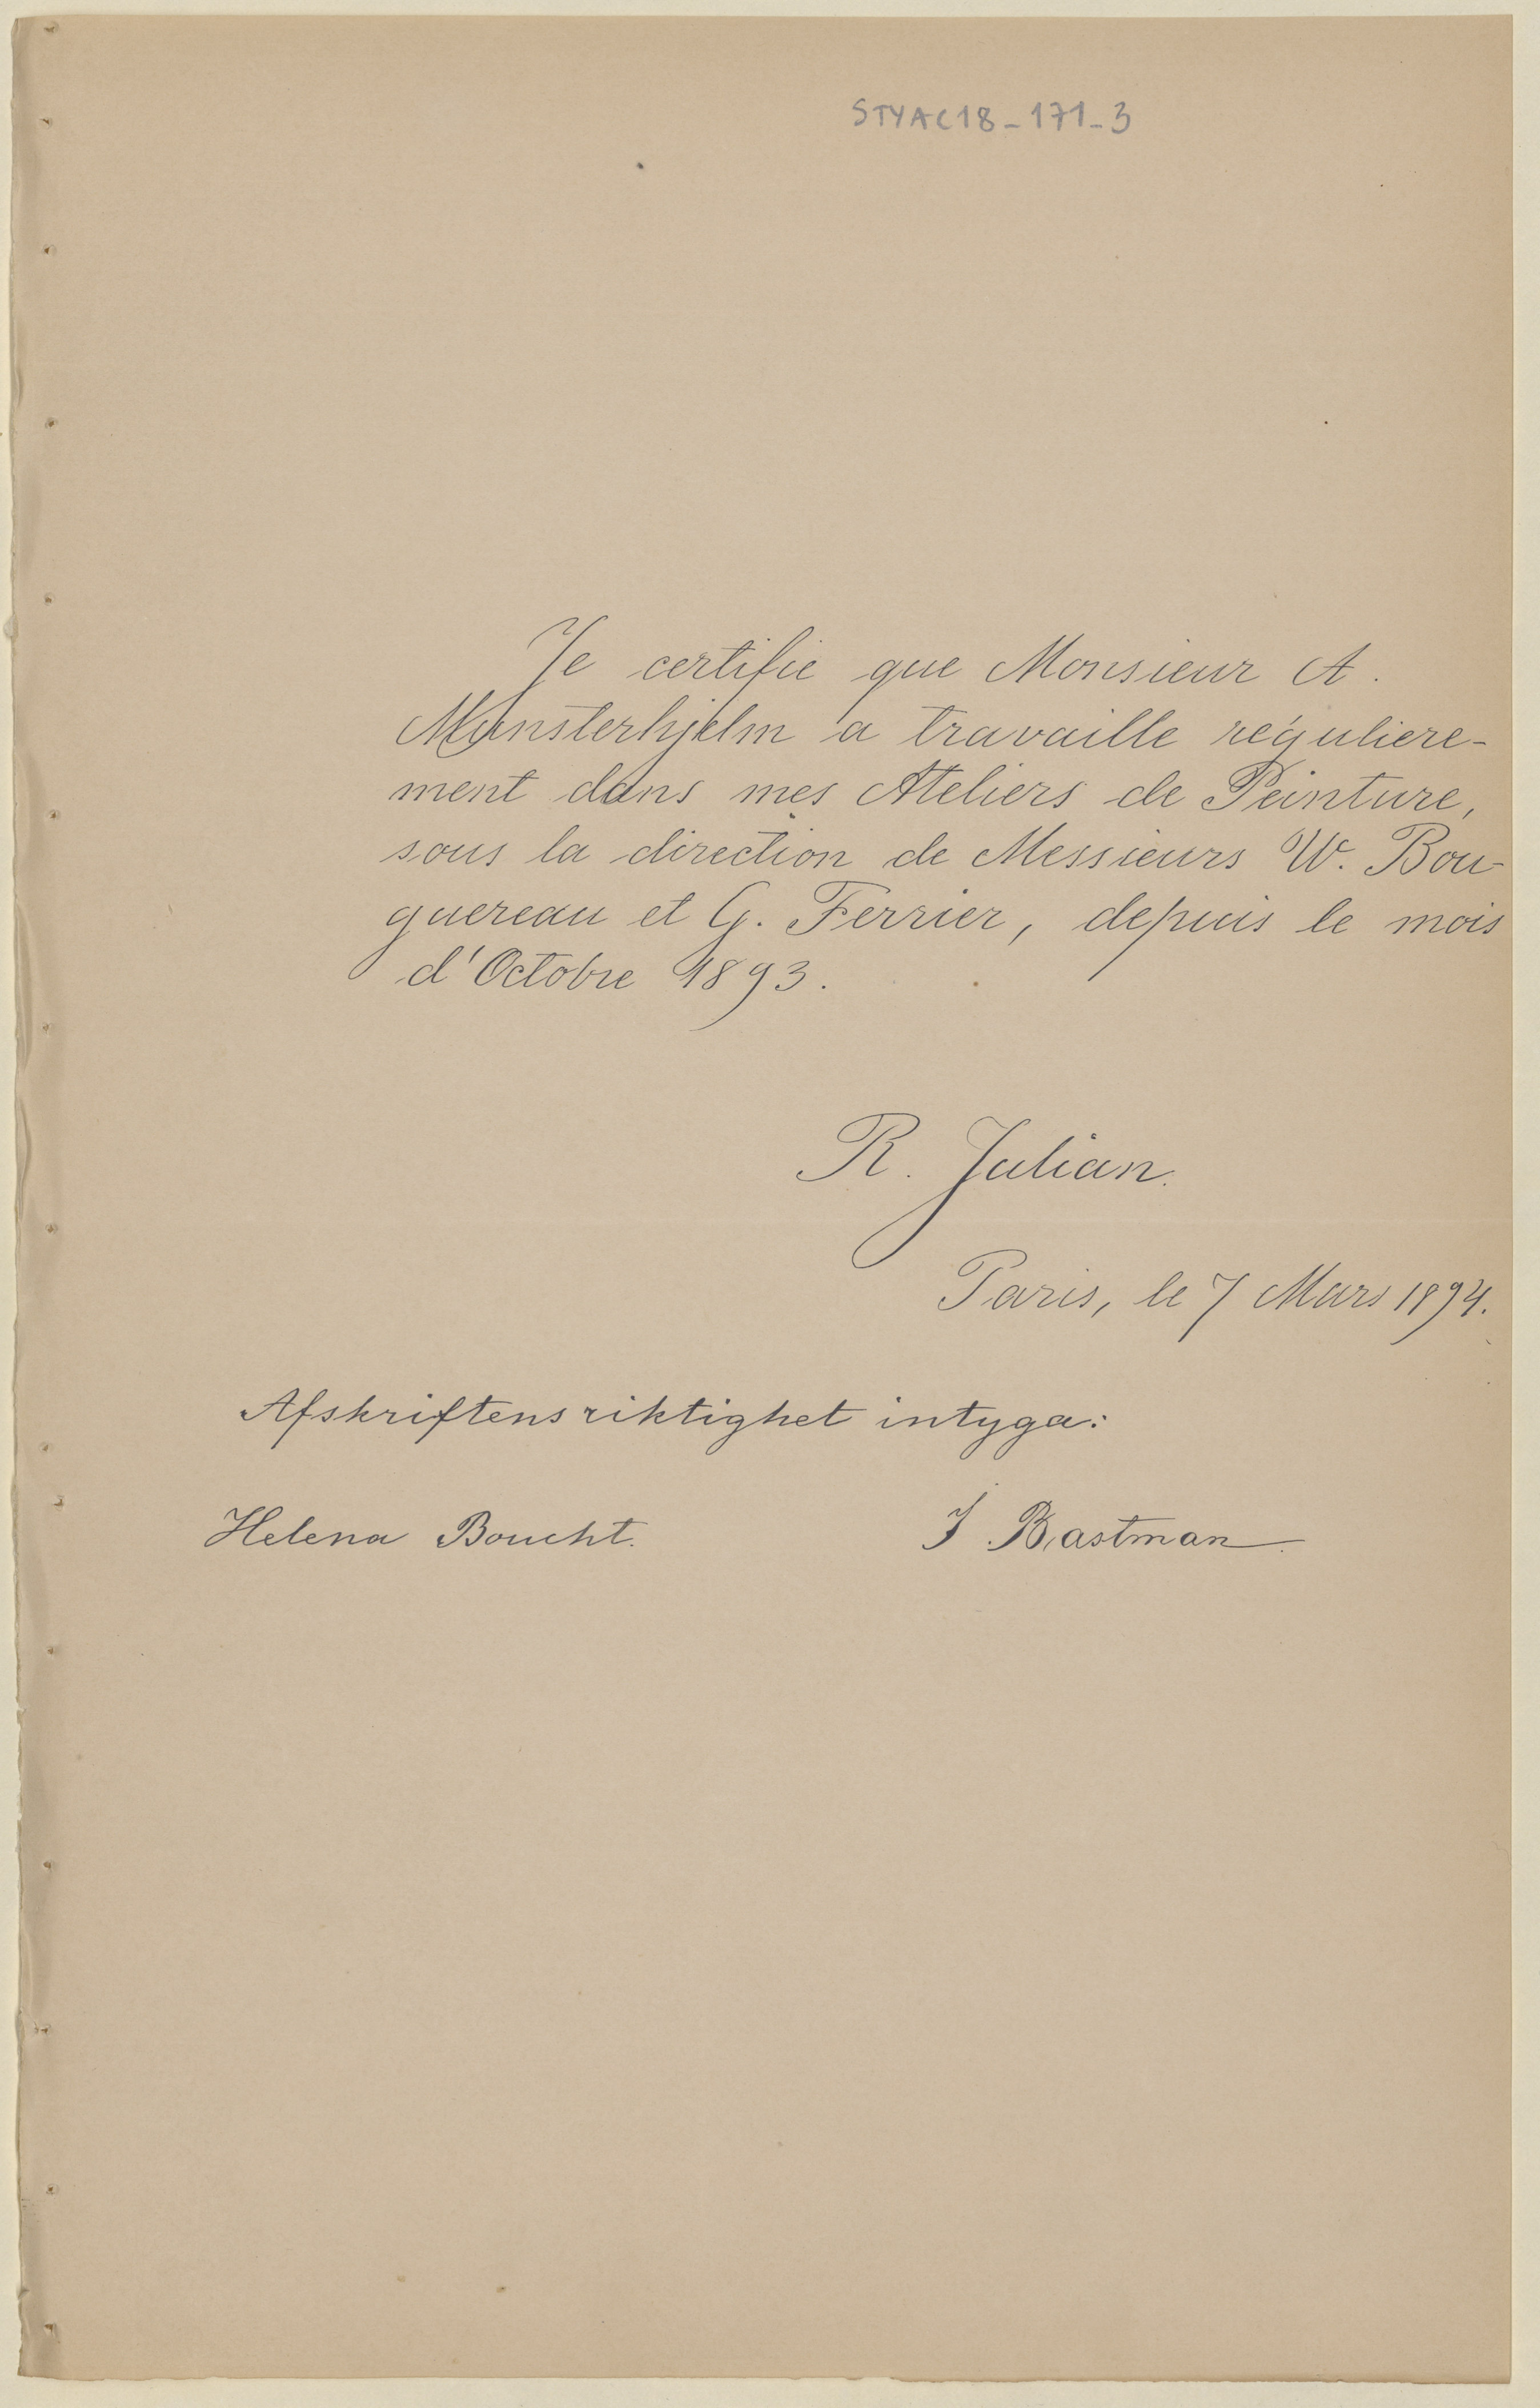 STYAC18-171-3
Je certifie que Monsieur A.
Munsterhjelm a travaille réguliere-
ment dans mes Ateliers de Peinture,
sous la direction de Messieurs W. Bou-
guereau et G. Ferrier, depuis le mois
d'Octobre 1893.
R. Julian.
Paris, le 7 Mars 1894.
Afskriftens riktighet intyga:
Helena Boucht. J Bastman